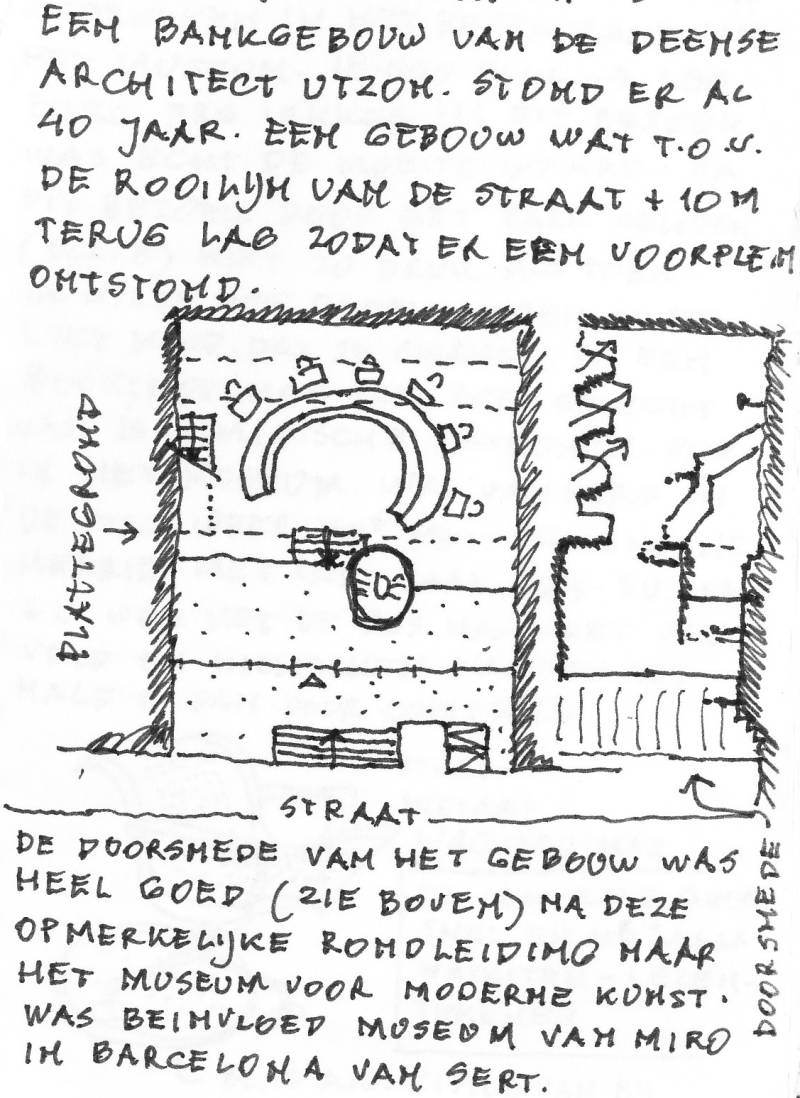 EEN BANKGEBOUW VAN DE DEENSE
ARCHITECT UTZON. STOND ER AL
40 JAAR. EEN GEBOUW WAT T.O.V.
DE ROOILIJN VAN DE STRAAT ± 10 M
TERUG LAG ZODAT ER EEN VOORPLEIN
ONTSTOND.
PLATTEGROND
STRAAT
DOORSNEDE
DE DOORSNEDE VAN HET GEBOUW WAS
HEEL GOED (ZIE BOVEN) NA DEZE
OPMERKELIJKE RONDLEIDING NAAR
HET MUSEUM VOOR MODERNE KUNST.
WAS BEINVLOED MUSEUM VAN MIRO
IN BARCELONA VAN SERT.